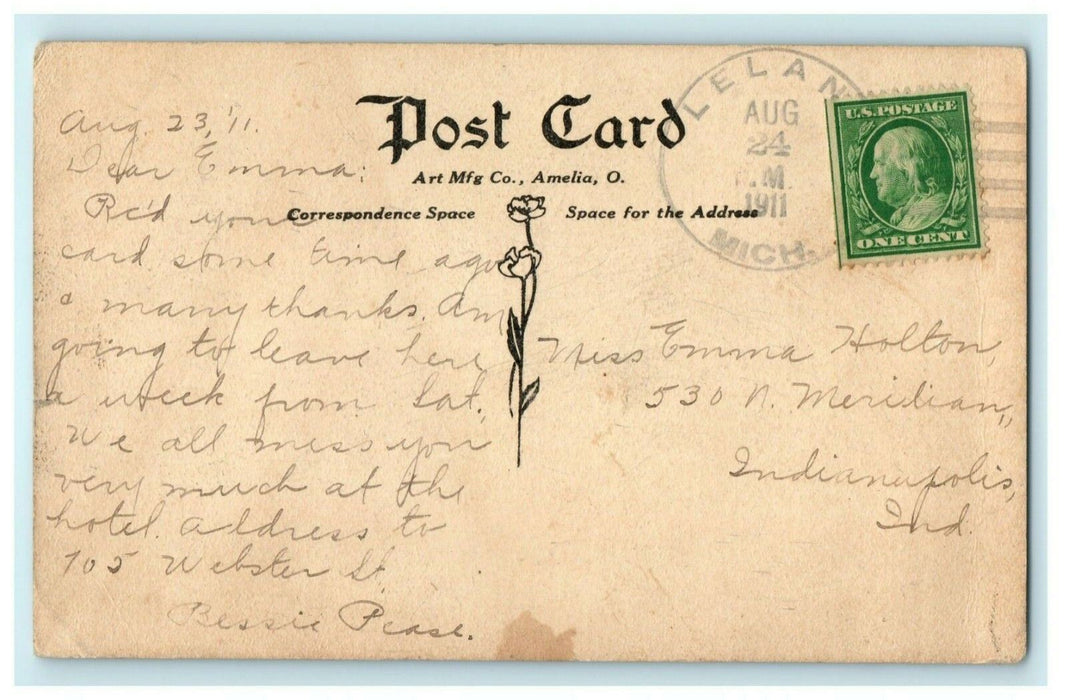 Post Card
Art Mfg Co., Amelia, O.
Correspondence Space
Space for the Address
LELAN
AUG
24
.M.
1911
MICH.
U.S.POSTAGE
ONE CENT
Aug. 23, '11.
Dear Emma:
Rc'd your
card some time ago
& many thanks. Am
going to leave here
a week from Sat.
We all miss you
very much at the
hotel. Address to
705 Webster St.
Bessie Pease.
Miss Emma Holton,
530 N. Meridian,
Indianapolis,
Ind.